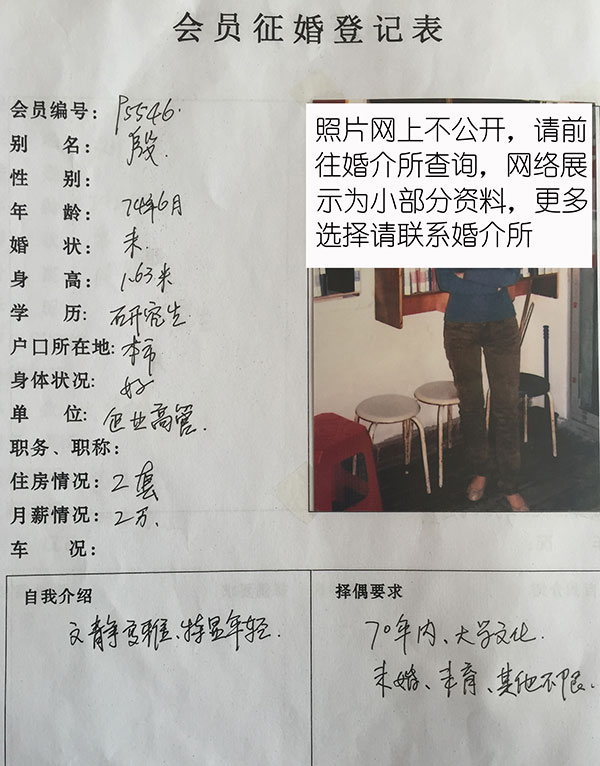 会员征婚登记表
会员编号: P5546.
别 名: 殷.
性 别:
年 龄: 74年6月
婚 状: 未.
身 高: 1.63米
学 历: 研究生.
户口所在地: 本市
身体状况: 好
单 位: 企业高管.
职务、职称:
住房情况: 2套
月薪情况: 2万.
车 况:
照片网上不公开，请前
往婚介所查询，网络展
示为小部分资料，更多
选择请联系婚介所
自我介绍
文静高雅、特显年轻.
择偶要求
70年内、大学文化.
未婚、未育、其他不限.